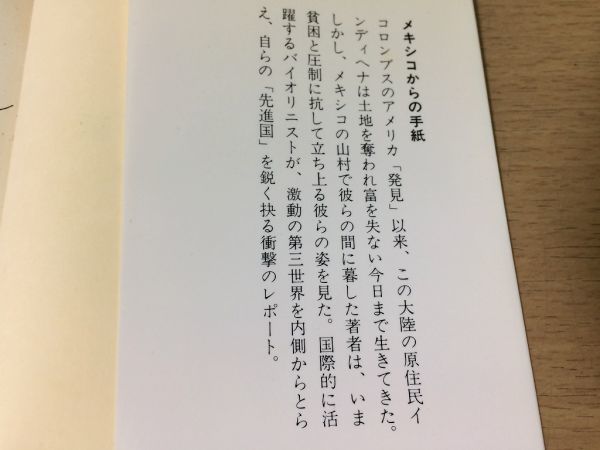 メキシコからの手紙
コロンブスのアメリカ「発見」以来、この大陸の原住民イ
ンディヘナは土地を奪われ富を失ない今日まで生きてきた。
しかし、メキシコの山村で彼らの間に暮した著者は、いま
貧困と圧制に抗して立ち上る彼らの姿を見た。国際的に活
躍するバイオリニストが、激動の第三世界を内側からとら
え、自らの「先進国」を鋭く抉る衝撃のレポート。